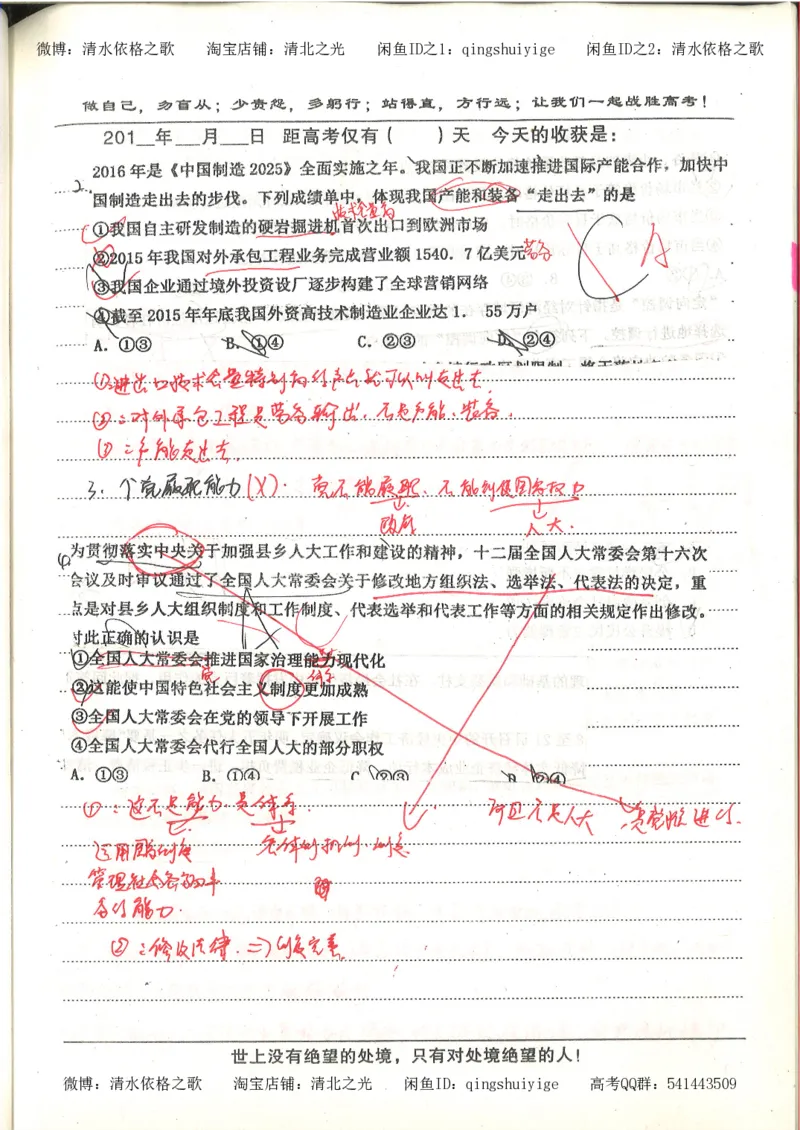 微博：清水依格之歌 淘宝店铺：清北之光 闲鱼ID之1：qingshuiyige 闲鱼ID之2：清水依格之歌
做自己，勿盲从；少责怨，多躬行；站得直，方行远；让我们一起战胜高考！
201__年___月___日 距高考仅有（ ）天 今天的收获是：
2. 2016年是《中国制造2025》全面实施之年。我国正不断加速推进国际产能合作，加快中
国制造走出去的步伐。下列成绩单中，体现我国产能和装备“走出去”的是
①我国自主研发制造的硬岩掘进机首次出口到欧洲市场
②2015年我国对外承包工程业务完成营业额1540．7亿美元 劳务
A
③我国企业通过境外投资设厂逐步构建了全球营销网络
④截至2015年年底我国外资高技术制造业企业达1．55万户
A．①③ B．①④ C．②③ D．②④
②：对外承包工程是劳务输出，不是产能、装备。
③：产能走出去
3、个党履职能力（X）．党不能履职、不能行使国家权力
政府 人大．
为贯彻落实中央关于加强县乡人大工作和建设的精神，十二届全国人大常委会第十六次
会议及时审议通过了全国人大常委会关于修改地方组织法、选举法、代表法的决定，重
点是对县乡人大组织制度和工作制度、代表选举和代表工作等方面的相关规定作出修改。
对此正确的认识是
①全国人大常委会推进国家治理能力现代化
体系
②这能使中国特色社会主义制度更加成熟
③全国人大常委会在党的领导下开展工作
④全国人大常委会代行全国人大的部分职权
A．①③ B．①④ C．②③ D．②④
①：这不是能力是体系． 而且不是人大 是党推进的．
运用国家制度
管理社会各方面事
务的能力．
②：修改法律 ⇒ 制度完善
世上没有绝望的处境，只有对处境绝望的人！
微博：清水依格之歌 淘宝店铺：清北之光 闲鱼ID：qingshuiyige 高考QQ群：541443509